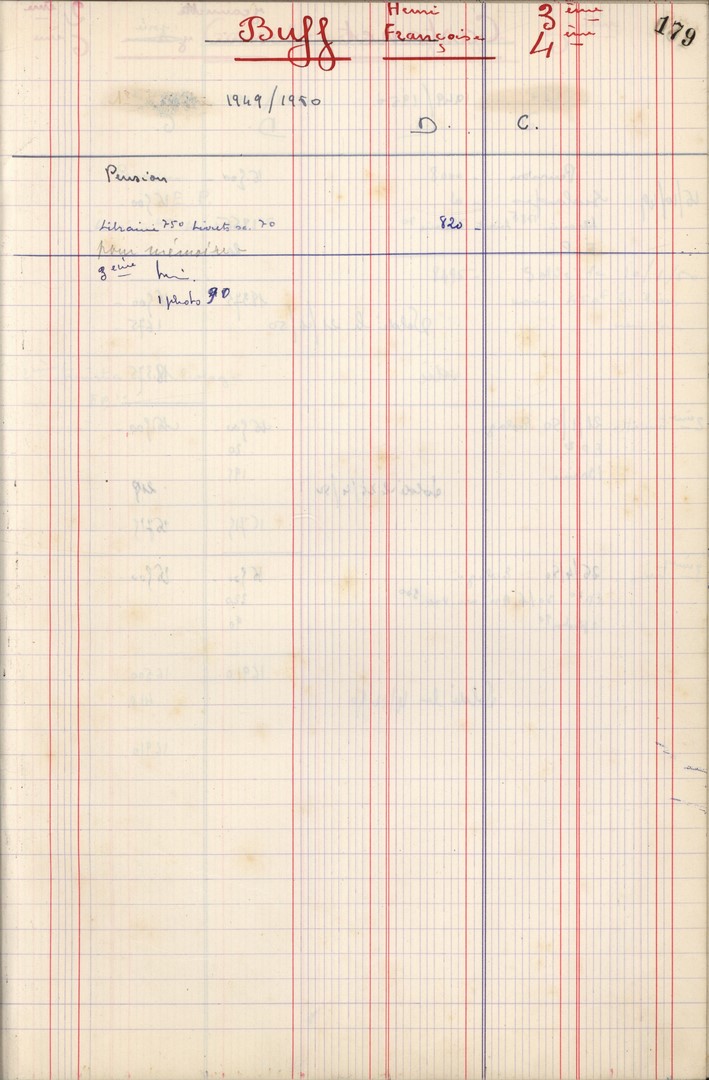 Buff Henri 3ème 179
Françoise 4ème
1949/1950
D. C.
Pension
Librairie 750 Livrets sc. 70 820 -
pour mémoire
3ème tri.
1 photo 90